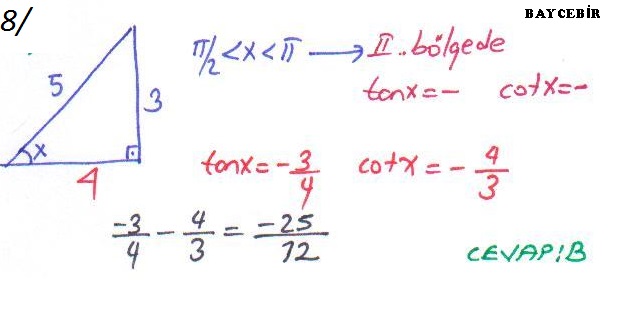 BAYCEBİR
8/
π/2 < x < π → II. bölgede
tanx = - cotx = -
5
3
x
4
tanx = -3/4 cotx = -4/3
-3/4 - 4/3 = -25/12
CEVAP:B